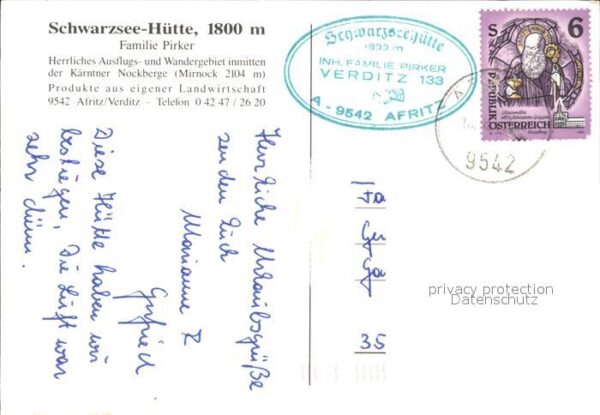 Schwarzsee-Hütte, 1800 m
Familie Pirker
Herrliches Ausflugs- und Wandergebiet inmitten
der Kärntner Nockberge (Mirnock 2104 m)
Produkte aus eigener Landwirtschaft
9542 Afritz/Verditz · Telefon 0 42 47 / 26 20
Schwarzseehütte
1800 m
INH. FAMILIE PIRKER
VERDITZ 133
A - 9542 AFRITZ
S 6
REPUBLIK
ÖSTERREICH
9542
Herzliche Urlaubsgrüße
senden Euch
Marianne &
Gottfried
Diese Hütte haben wir
bestiegen, die Luft war
sehr dünn.
Fa
Ge
Ga
35
privacy protection
Datenschutz